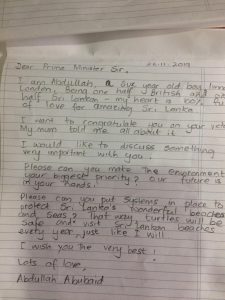 26.11.2019
Dear Prime Minister Sir,
I am Abdullah, a five year old boy from
London. Being one half British and one
half Sri Lankan - my heart is 100% full
of love for amazing Sri Lanka
I want to congratulate you on your
My mum told me all about it
I would like to discuss something
very important with you.
Please can you make the environment
your biggest priority? Our future is
in your hands.
Please can you put systems in place to
protect Sri Lanka's wonderful beaches
and seas? That way turtles will be
safe and visit Sri Lankan beaches
every year, just like I will
I wish you the very best!
Lots of love,
Abdullah